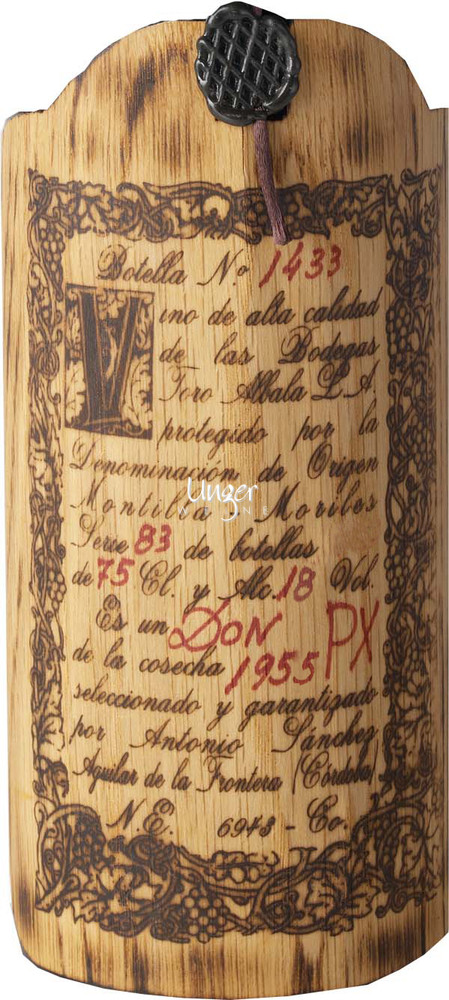 Botella Nº 1433
Vino de alta calidad
de las Bodegas
Toro Albala S.A.
protegido por la
Denominación de Origen
Montilla Moriles
Unger
WEINE
Serie 83 de botellas
de 75 Cl. y Alc. 18 Vol.
Es un DON PX
de la cosecha 1955
seleccionado y garantizado
por Antonio Sánchez
Aguilar de la Frontera (Córdoba)
N.E. 6943 - Co.